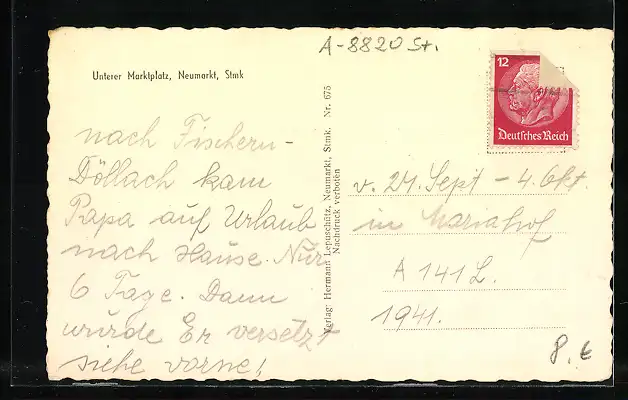 A-8820 St.
Unterer Marktplatz, Neumarkt, Stmk
12
Deutsches Reich
nach Fischern-
Döllach kam
Papa auf Urlaub
nach Hause. Nur
6 Tage. Dann
wurde Er versetzt
siehe vorne!
Verlag: Hermann Lepuschütz, Neumarkt, Stmk. Nr. 675
Nachdruck verboten
v. 21. Sept - 4. Okt.
in Mariahof
A 141 L.
1941.
8.€